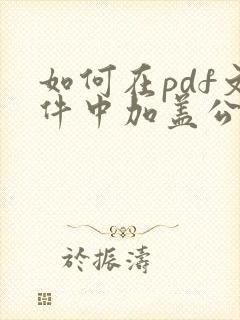 如何在pdf文
件中加盖公
於振濤